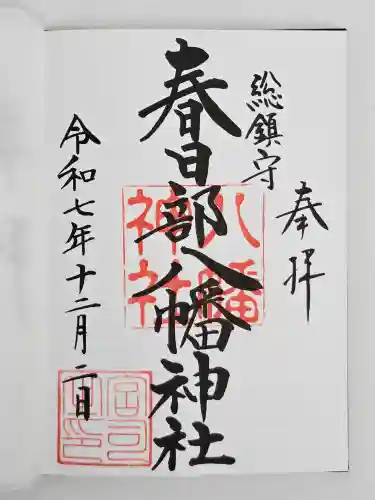 奉拝
総鎮守
春日部八幡神社
八幡
神社
令和七年十二月二日
宮司
之印